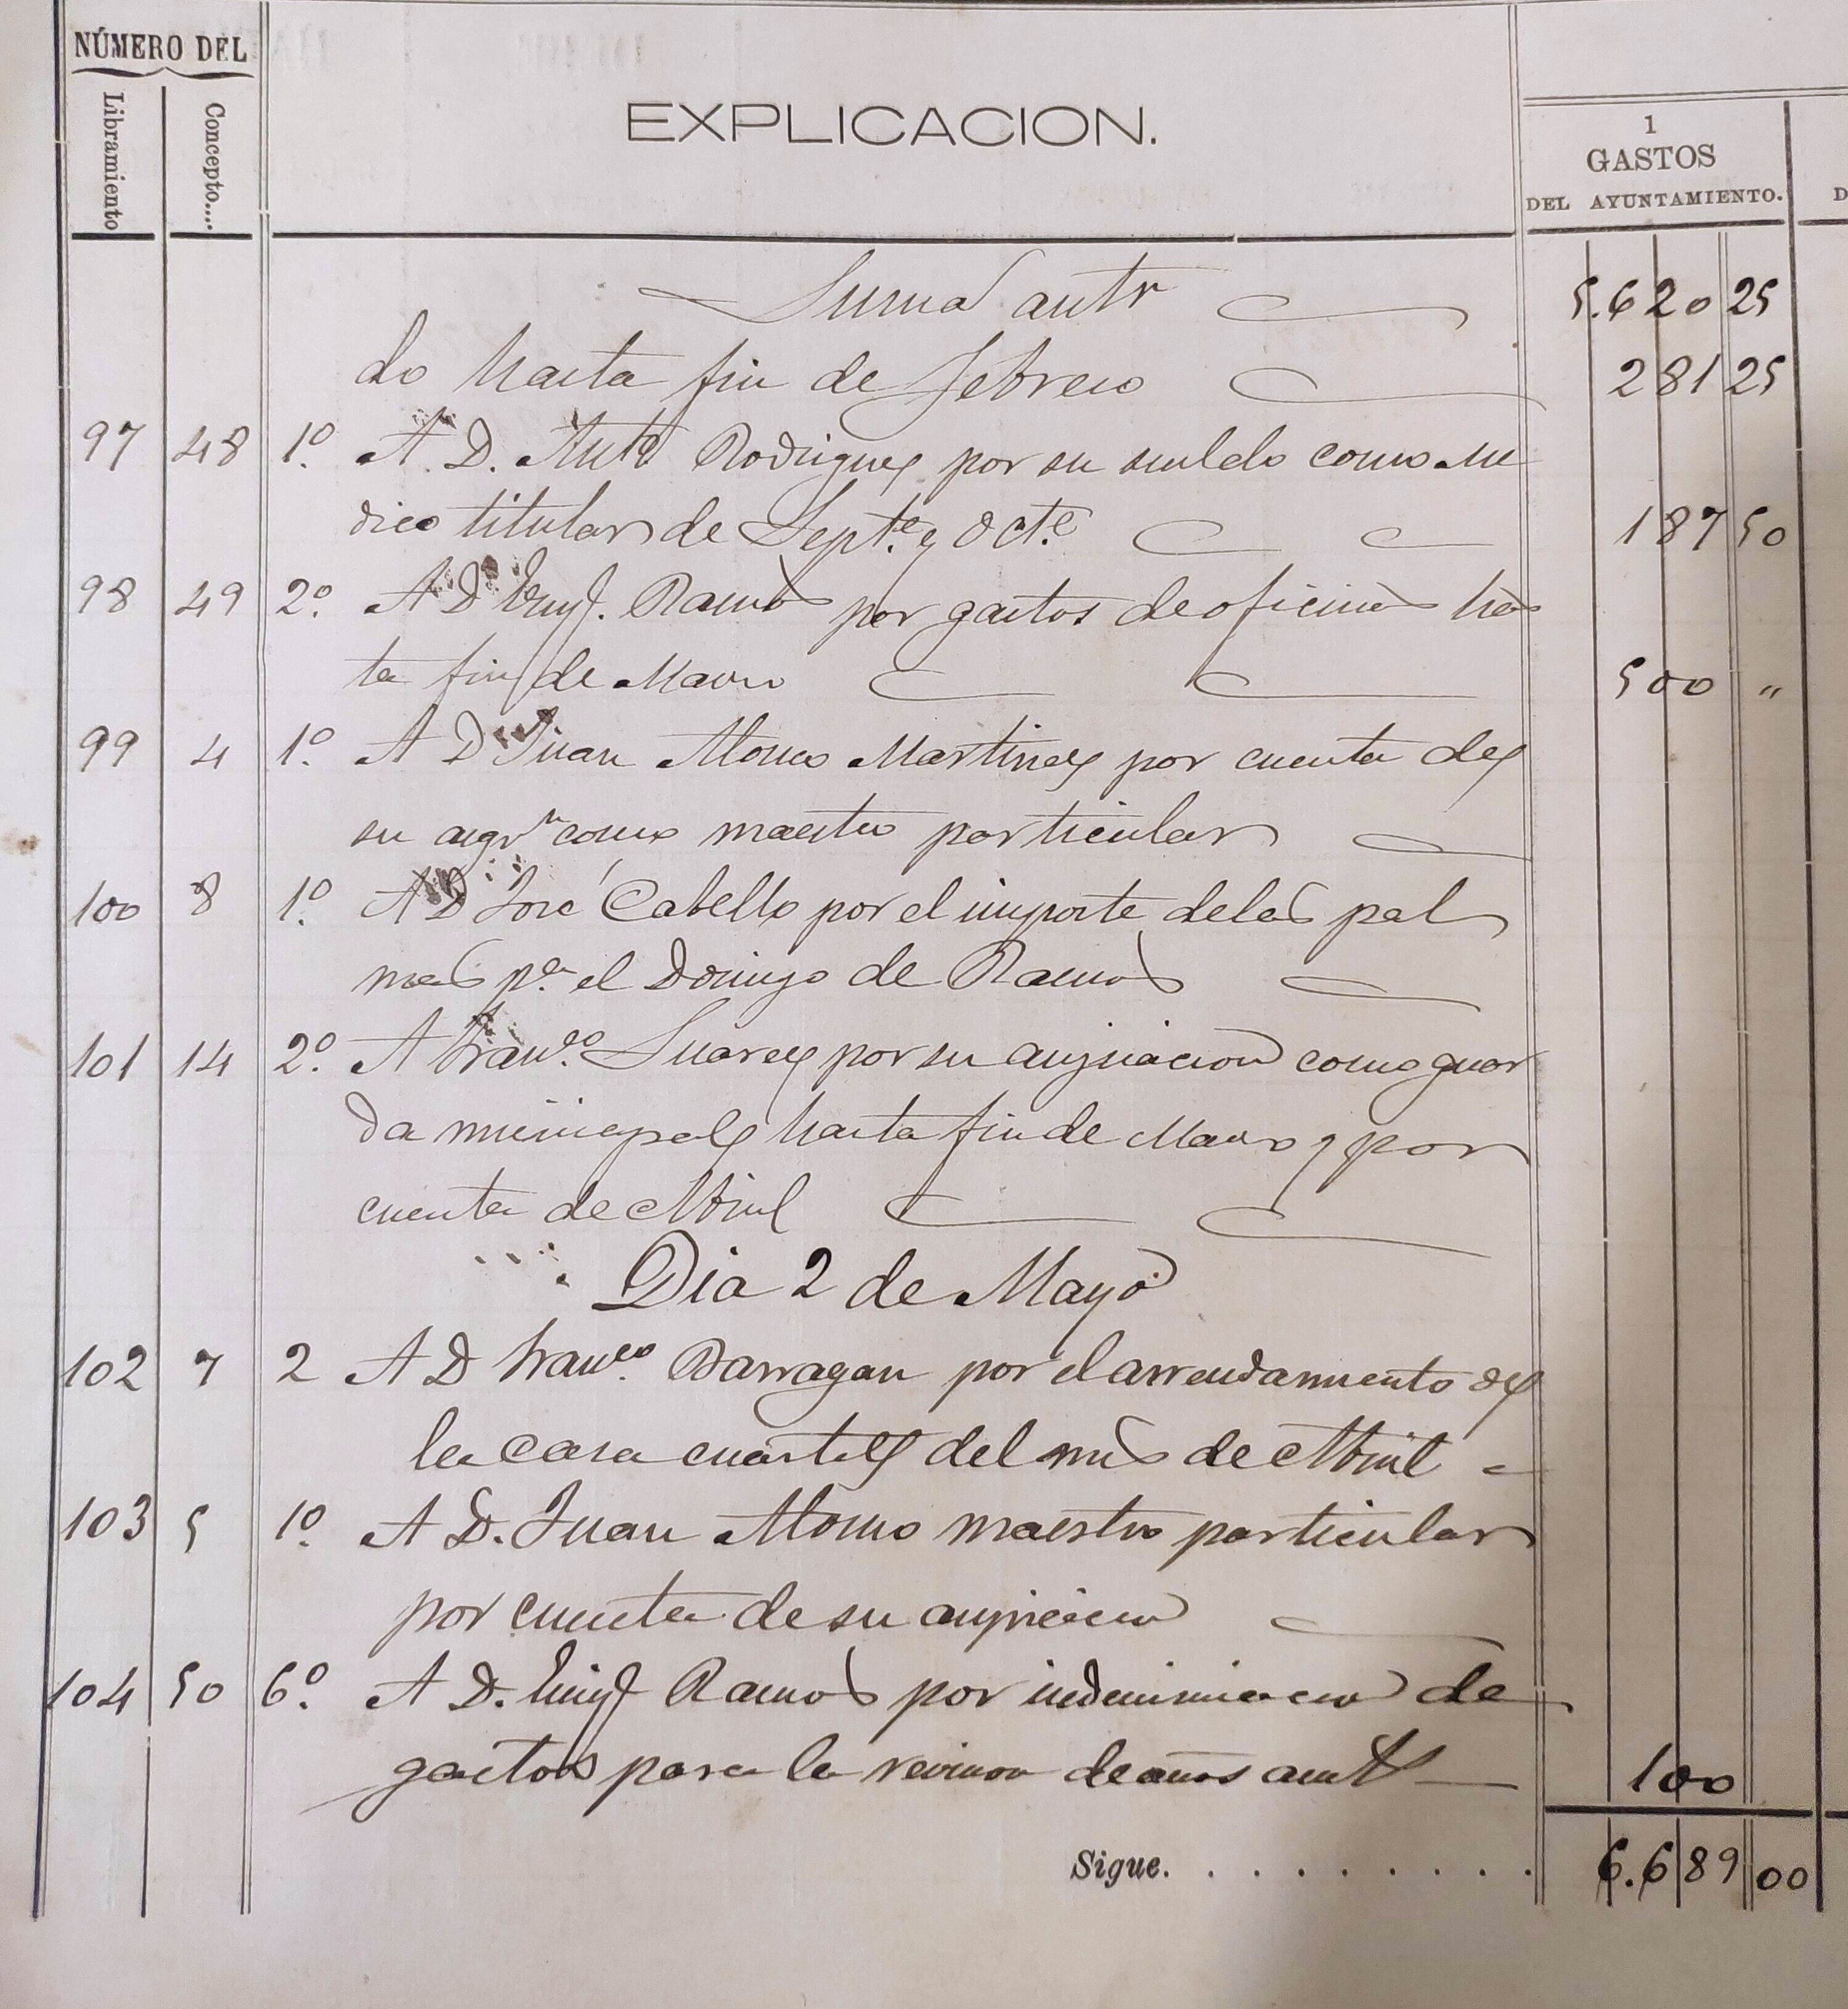 NÚMERO DEL
Libramiento Concepto....
EXPLICACION.
1
GASTOS
DEL AYUNTAMIENTO.
D
Suma antr 5.620 25
do hasta fin de Febrero 281 25
97 48 1º. A. D. Antº Rodriguez por su sueldo como me
dico titular de Septe. y Octe. 187 50
98 49 2º. A D Enrq. Ramos por gastos de oficina has
ta fin de Marzo 500 "
99 4 1º. A D Juan Alonso Martinez por cuenta de
su asign como maestro particular
100 8 1º. A D José Cabello por el importe de las pal
mas pª. el Domingo de Ramos
101 14 2º. A Franco. Suarez por su asignacion como guar
da municipal hasta fin de Marzo y por
cuenta de Abril
Dia 2 de Mayo
102 7 2 A D Franco. Barragan por el arrendamiento de
la casa cuartel del mes de Abril
103 5 1º. A D. Juan Alonso maestro particular
por cuenta de su asignacion
104 50 6º. A D. Enrq Ramos por indemnizacion de
gastos para la revision de años antrs 100
Sigue. . . . . . . . . . 6.689 00